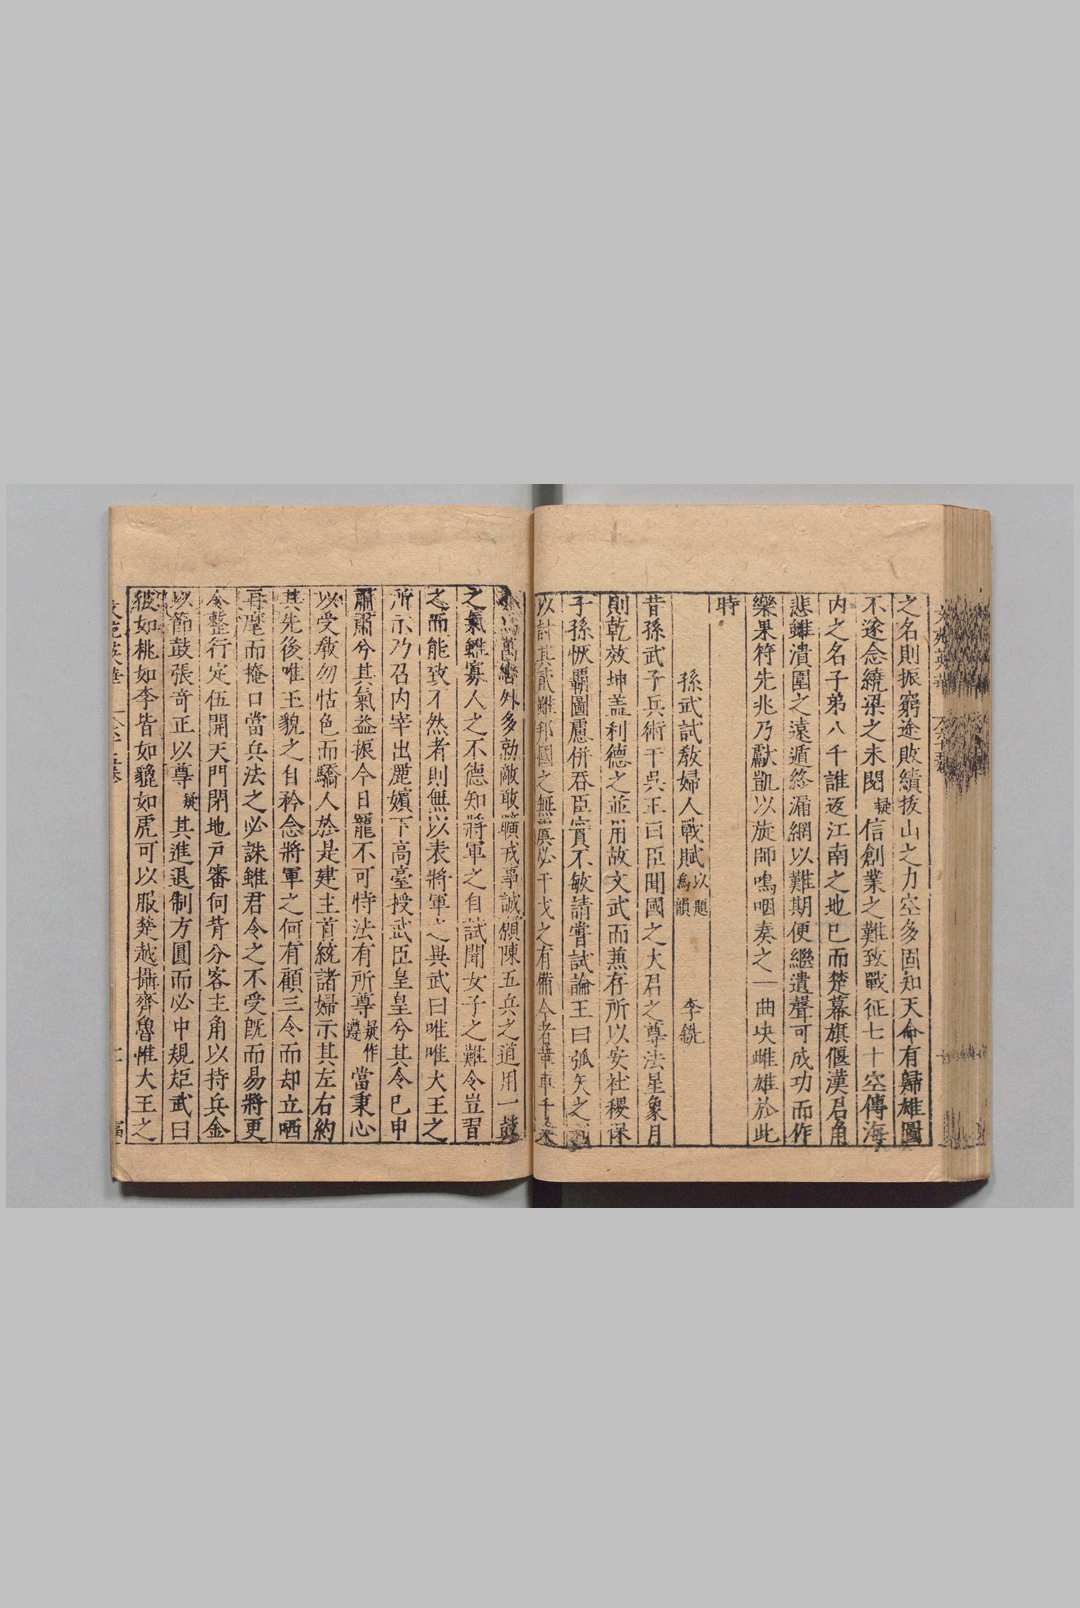 之名則振窮途敗績拔山之力空多固知天命有歸雄圖
不遂念繞梁之未閱疑信創業之難致戰征七十空傳海
内之名子弟八千誰返江南之地已而楚幕旗偃漢君角
悲雖潰圍之遠遁終漏網以難期便繼遺聲可成功而作
樂果符先兆乃獻凱以旋師鳴咽奏之一曲决雌雄於此
時
孫武試教婦人戰賦以題爲韻 李銑
昔孫武子兵術干吳王曰臣聞國之大君之尊法星象月
則乾效坤盖利德之並用故文武而兼存所以安社稷保
子孫恢覇圖慮併吞臣實不敏請嘗試論王曰弧矢之
以討其貳雖邦國之無虞必干戈之有備今者華車千
外多勍敵敢曠戎事誠願陳五兵之道用一鼓
之氣雖寡人之不德知將軍之自試聞女子之難令豈習
之而能致不然者則無以表將軍之異武曰唯唯大王之
所示乃召内宰出麗嬪下高臺授武臣皇皇兮其令已申
肅肅兮其氣益振今日寵不可恃法有所尊疑作遵當秉心
以受敎勿怙色而驕人於是建主首統諸婦示其左右約
其先後唯王貌之自矜念將軍之何有顧三令而却立哂
再麾而掩口當兵法之必誅雖君令之不受旣而易將更
令整行定伍開天門閉地户審向背分客主角以持兵金
以節鼓張奇正以尊疑其進退制方圓而必中規矩武曰
彼如桃如李皆如貔如虎可以服楚越懾齊魯惟大王之